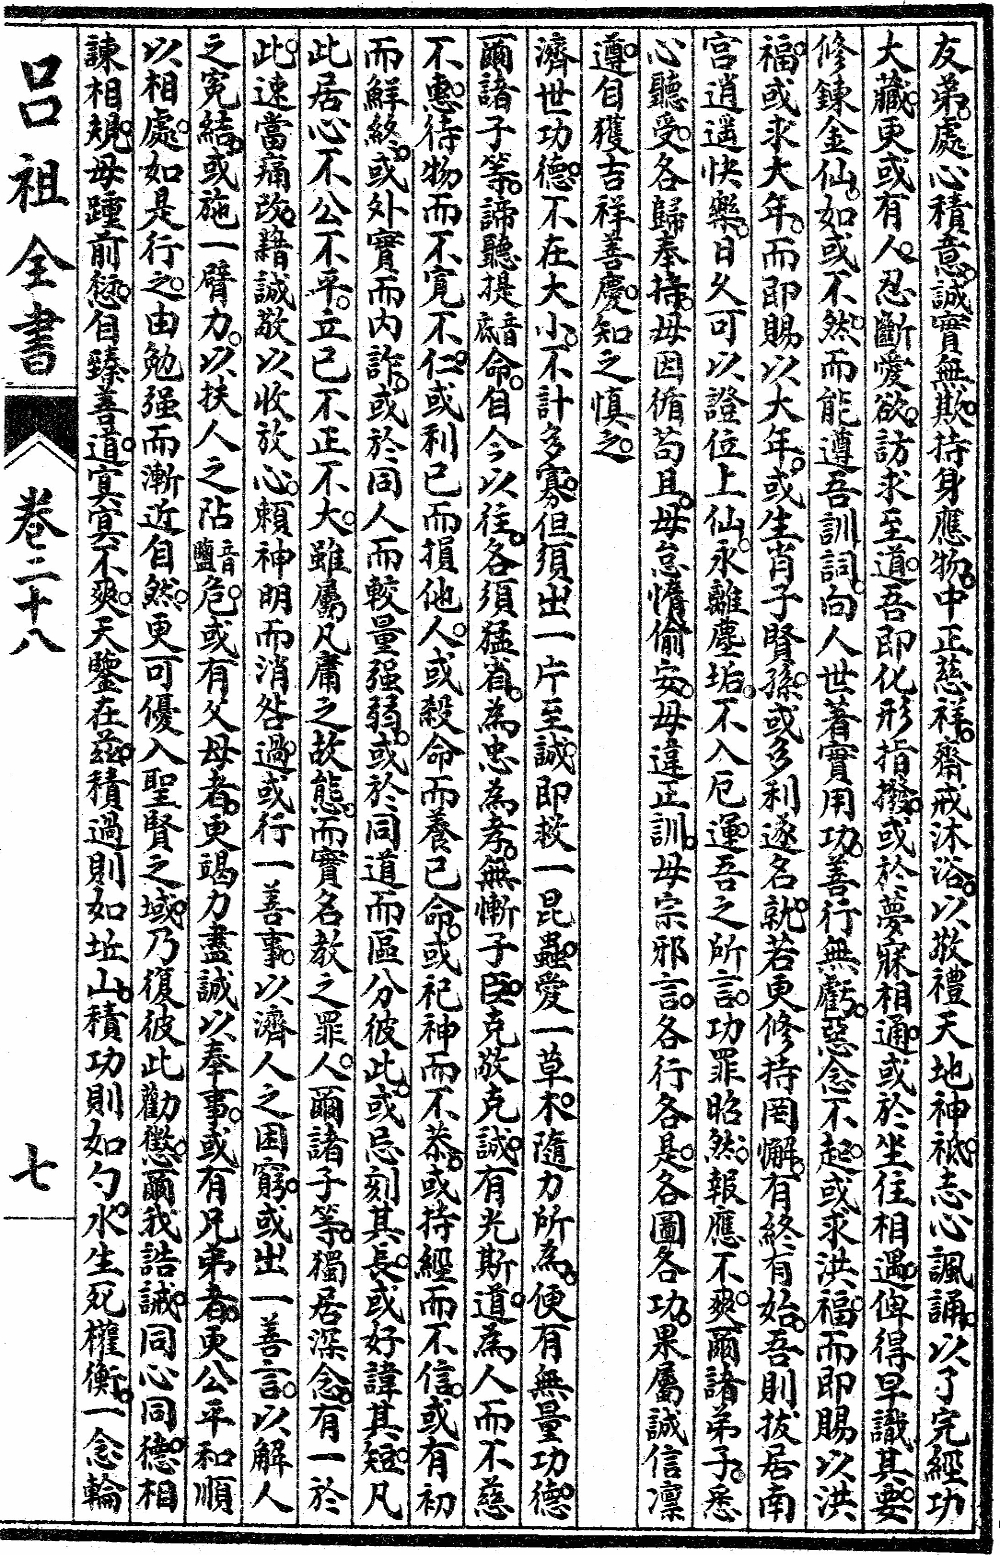 友弟處心積意誠實無欺持身應物中正慈祥齋戒沐浴以敬禮天地神祇志心諷誦以了完經功
大藏更或有人忍斷愛欲訪求至道吾即化形指撥或於夢寐相通或於坐住相遇俾得早識其要
修鍊金仙如或不然而能遵吾訓詞向人世著實用功善行無虧惡念不起或求洪福而即賜以洪
福或求大年而即賜以大年或生肖子賢孫或多利遂名就若更修持罔懈有終有始吾則拔居南
宮逍遥快樂日久可以證位上仙永離塵垢不入厄運吾之所言功罪昭然報應不爽爾諸弟子悉
心聽受各歸奉持毋因循苟且毋怠惰偷安毋違正訓毋宗邪言各行各是各圖各功果屬誠信凜
遵自獲吉祥善慶知之慎之
濟世功德不在大小不計多寡但須出一片至誠即救一昆蟲愛一草木隨力所為便有無量功德
爾諸子等諦聽提音底命自今以往各須猛省為忠為孝無慚子臣克敬克誠有光斯道為人而不慈
不惠待物而不寬不仁或利己而損他人或殺命而養己命或祀神而不恭或持經而不信或有初
而鮮終或外實而内詐或於同人而較量强弱或於同道而區分彼此或忌刻其長或好諱其短凡
此居心不公不平立已不正不大雖屬凡庸之故態而實名教之罪人爾諸子等獨居深念有一於
此速當痛改藉誠敬以收放心頼神明而消咎過或行一善事以濟人之困窮或出一善言以解人
之寃結或施一臂力以扶人之阽音鹽危或有父母者更竭力盡誠以奉事或有兄弟者更公平和順
以相處如是行之由勉强而漸近自然更可優入聖賢之域乃復彼此勸懲爾我誥誡同心同德相
諫相規毋踵前愆自臻善道㝠㝠不爽天鑒在茲積過則如坵山積功則如勺水生死權衡一念輪
吕祖全書
卷二十八
七